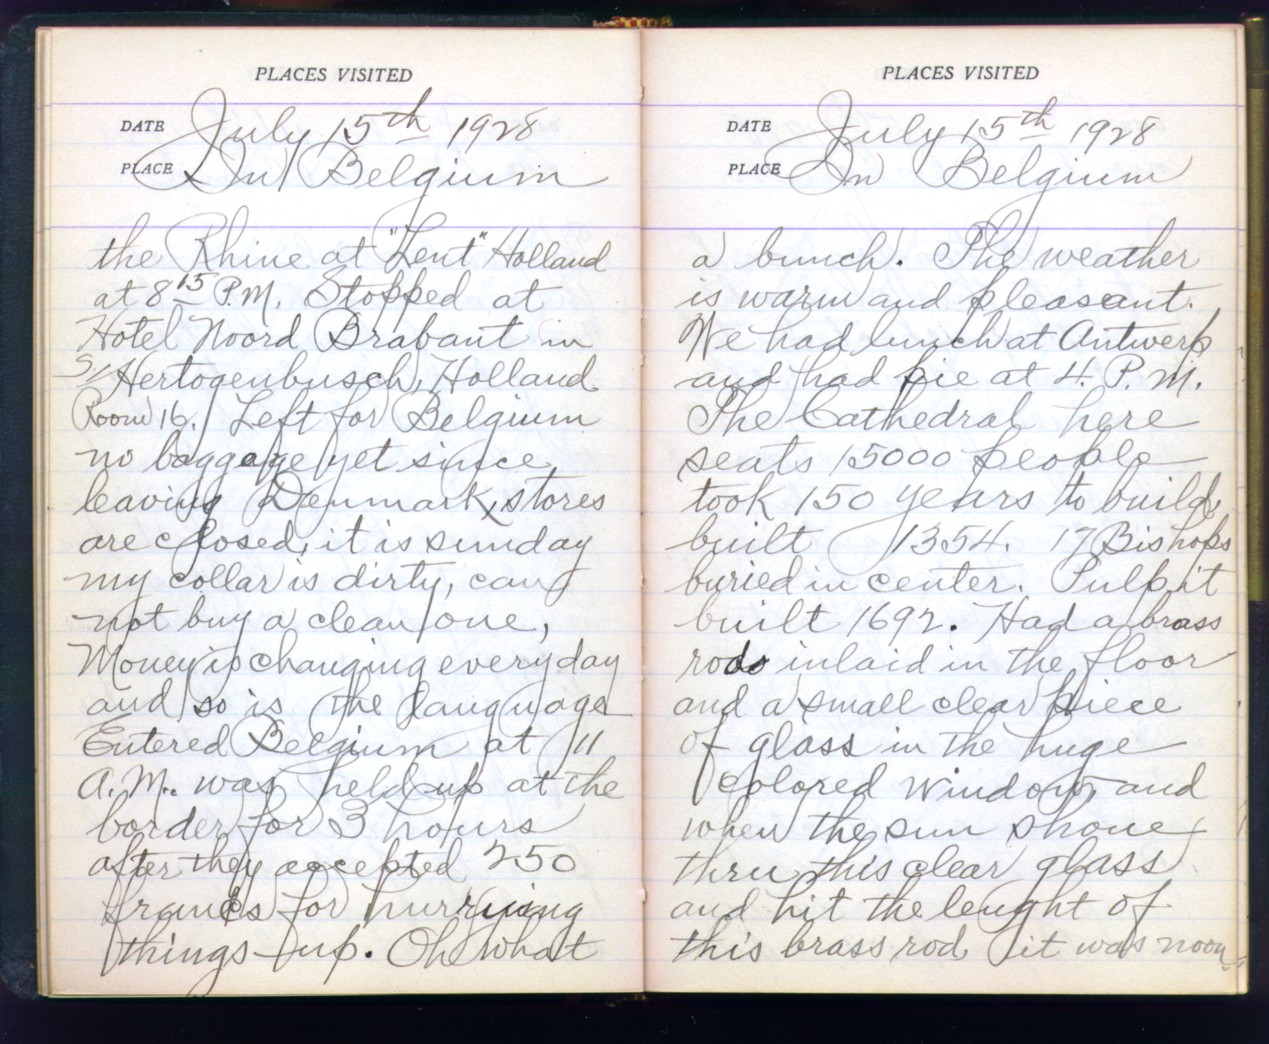 PLACES VISITED
DATE July 15th 1928
PLACE In Belgium
the Rhine at "Lent" Holland
at 8 15 P.M. Stopped at
Hotel Noord Brabant in
S/Hertogenbusch, Holland
Room 16. Left for Belgium
no baggage yet since
leaving Denmark, stores
are closed, it is sunday
my collar is dirty, can
not buy a clean one,
Money is changing every day
and so is the language
Entered Belgium at 11
A.M. was held up at the
border for 3 hours
after they accepted 250
francs for hurrying
things up. Oh what
PLACES VISITED
DATE July 15th 1928
PLACE In Belgium
a bunch. The weather
is warm and pleasant.
We had lunch at Antwerp
and had pie at 4. P.M.
The Cathedral here
seats 15000 people
took 150 years to build,
built 1354. 17 Bishops
buried in center. Pulpit
built 1692. Had a brass
rods inlaid in the floor
and a small clear piece
of glass in the huge
colored window, and
when the sun shone
thru this clear glass
and hit the lenght of
this brass rod it was noon